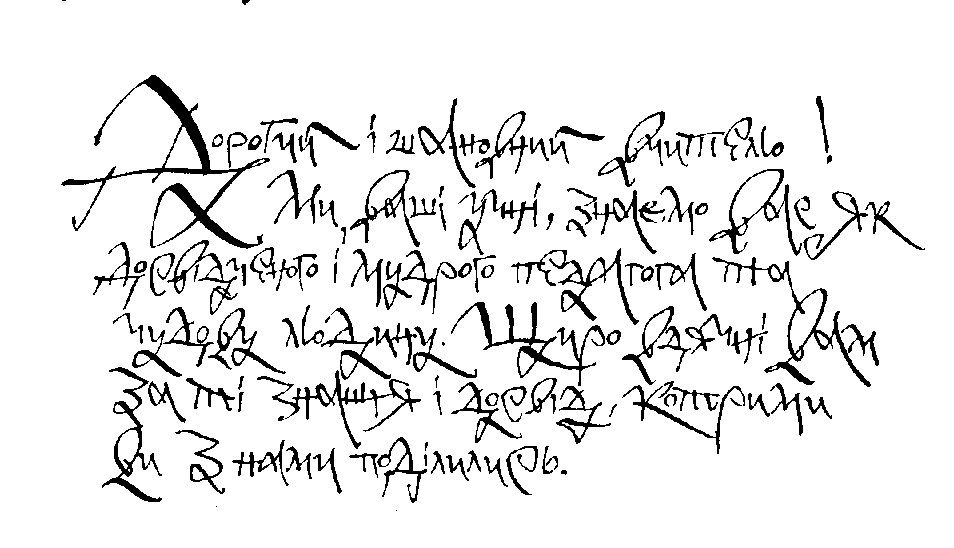 Дорогий і шановний вчителю!
Ми, ваші учні, знаємо Вас, як
досвідченого і мудрого педагога та
чудову людину. Щиро вдячні Вам
за ті знання і досвід, котрими
Ви з нами поділились.